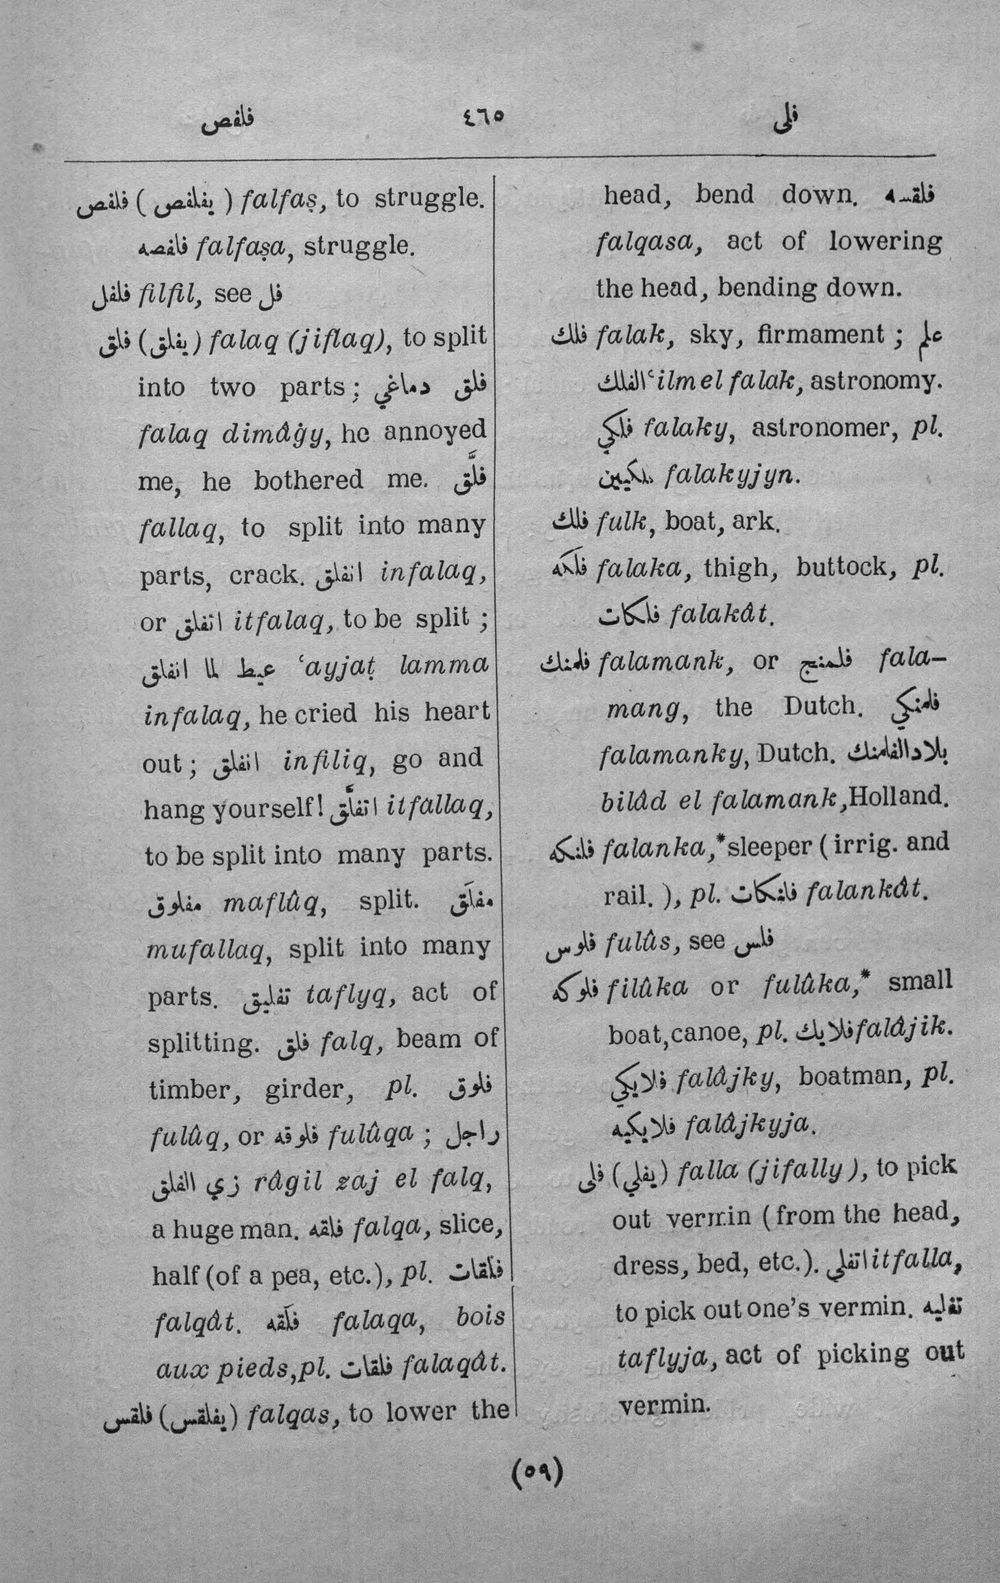 فلفص ٤٦٥ فلى
فلفص ( يفلفص ) falfaṣ, to struggle.
فلفصه falfaṣa, struggle.
فلفل filfil, see فل
فلق (يفلق) falaq (jiflaq), to split
into two parts; فلق دماغي
falaq dimâġy, he annoyed
me, he bothered me. فلَّق
fallaq, to split into many
parts, crack. انفلق infalaq,
or اتفلق itfalaq, to be split ;
عيط لما انفلق ʿayjaṭ lamma
infalaq, he cried his heart
out ; انفلق infiliq, go and
hang yourself! اتفلَّق itfallaq,
to be split into many parts.
مفلوق maflûq, split. مفلَق
mufallaq, split into many
parts. تفليق taflyq, act of
splitting. فلق falq, beam of
timber, girder, pl. فلوق
fulûq, or فلوقه fulûqa ; راجل
زي الفلق râgil zaj el falq,
a huge man. فلقه falqa, slice,
half (of a pea, etc.), pl. فلقات
falqât. فلَقه falaqa, bois
aux pieds, pl. فلقات falaqât.
فلقس (يفلقس) falqas, to lower the
head, bend down. فلقسه
falqasa, act of lowering
the head, bending down.
فلك falak, sky, firmament ; علم
الفلك ʿilm el falak, astronomy.
فلكي falaky, astronomer, pl.
فلكيين falakyjyn.
فلك fulk, boat, ark.
فلَكه falaka, thigh, buttock, pl.
فلكات falakât.
فلمنك falamank, or فلمنج fala-
mang, the Dutch. فلمنكي
falamanky, Dutch. بلاد الفلمنك
bilâd el falamank, Holland.
فلنكه falanka,* sleeper (irrig. and
rail. ), pl. فلنكات falankât.
فلوس fulûs, see فلس
فلوكه filûka or fulûka,* small
boat, canoe, pl. فلايك falâjik.
فلايكي falâjky, boatman, pl.
فلايكيه falâjkyja.
فلى (يفلي) falla (jifally), to pick
out vermin (from the head,
dress, bed, etc.). اتفلي itfalla,
to pick out one's vermin. تفليه
taflyja, act of picking out
vermin.
(٥٩)